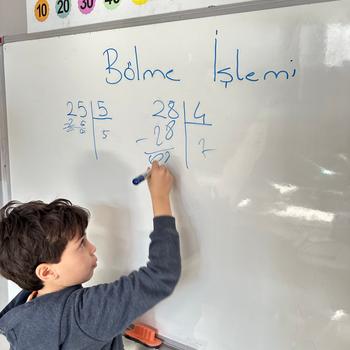 10 20 30 40
Bölme İşlemi
25 | 5
5
28 | 4
- 28 | 7